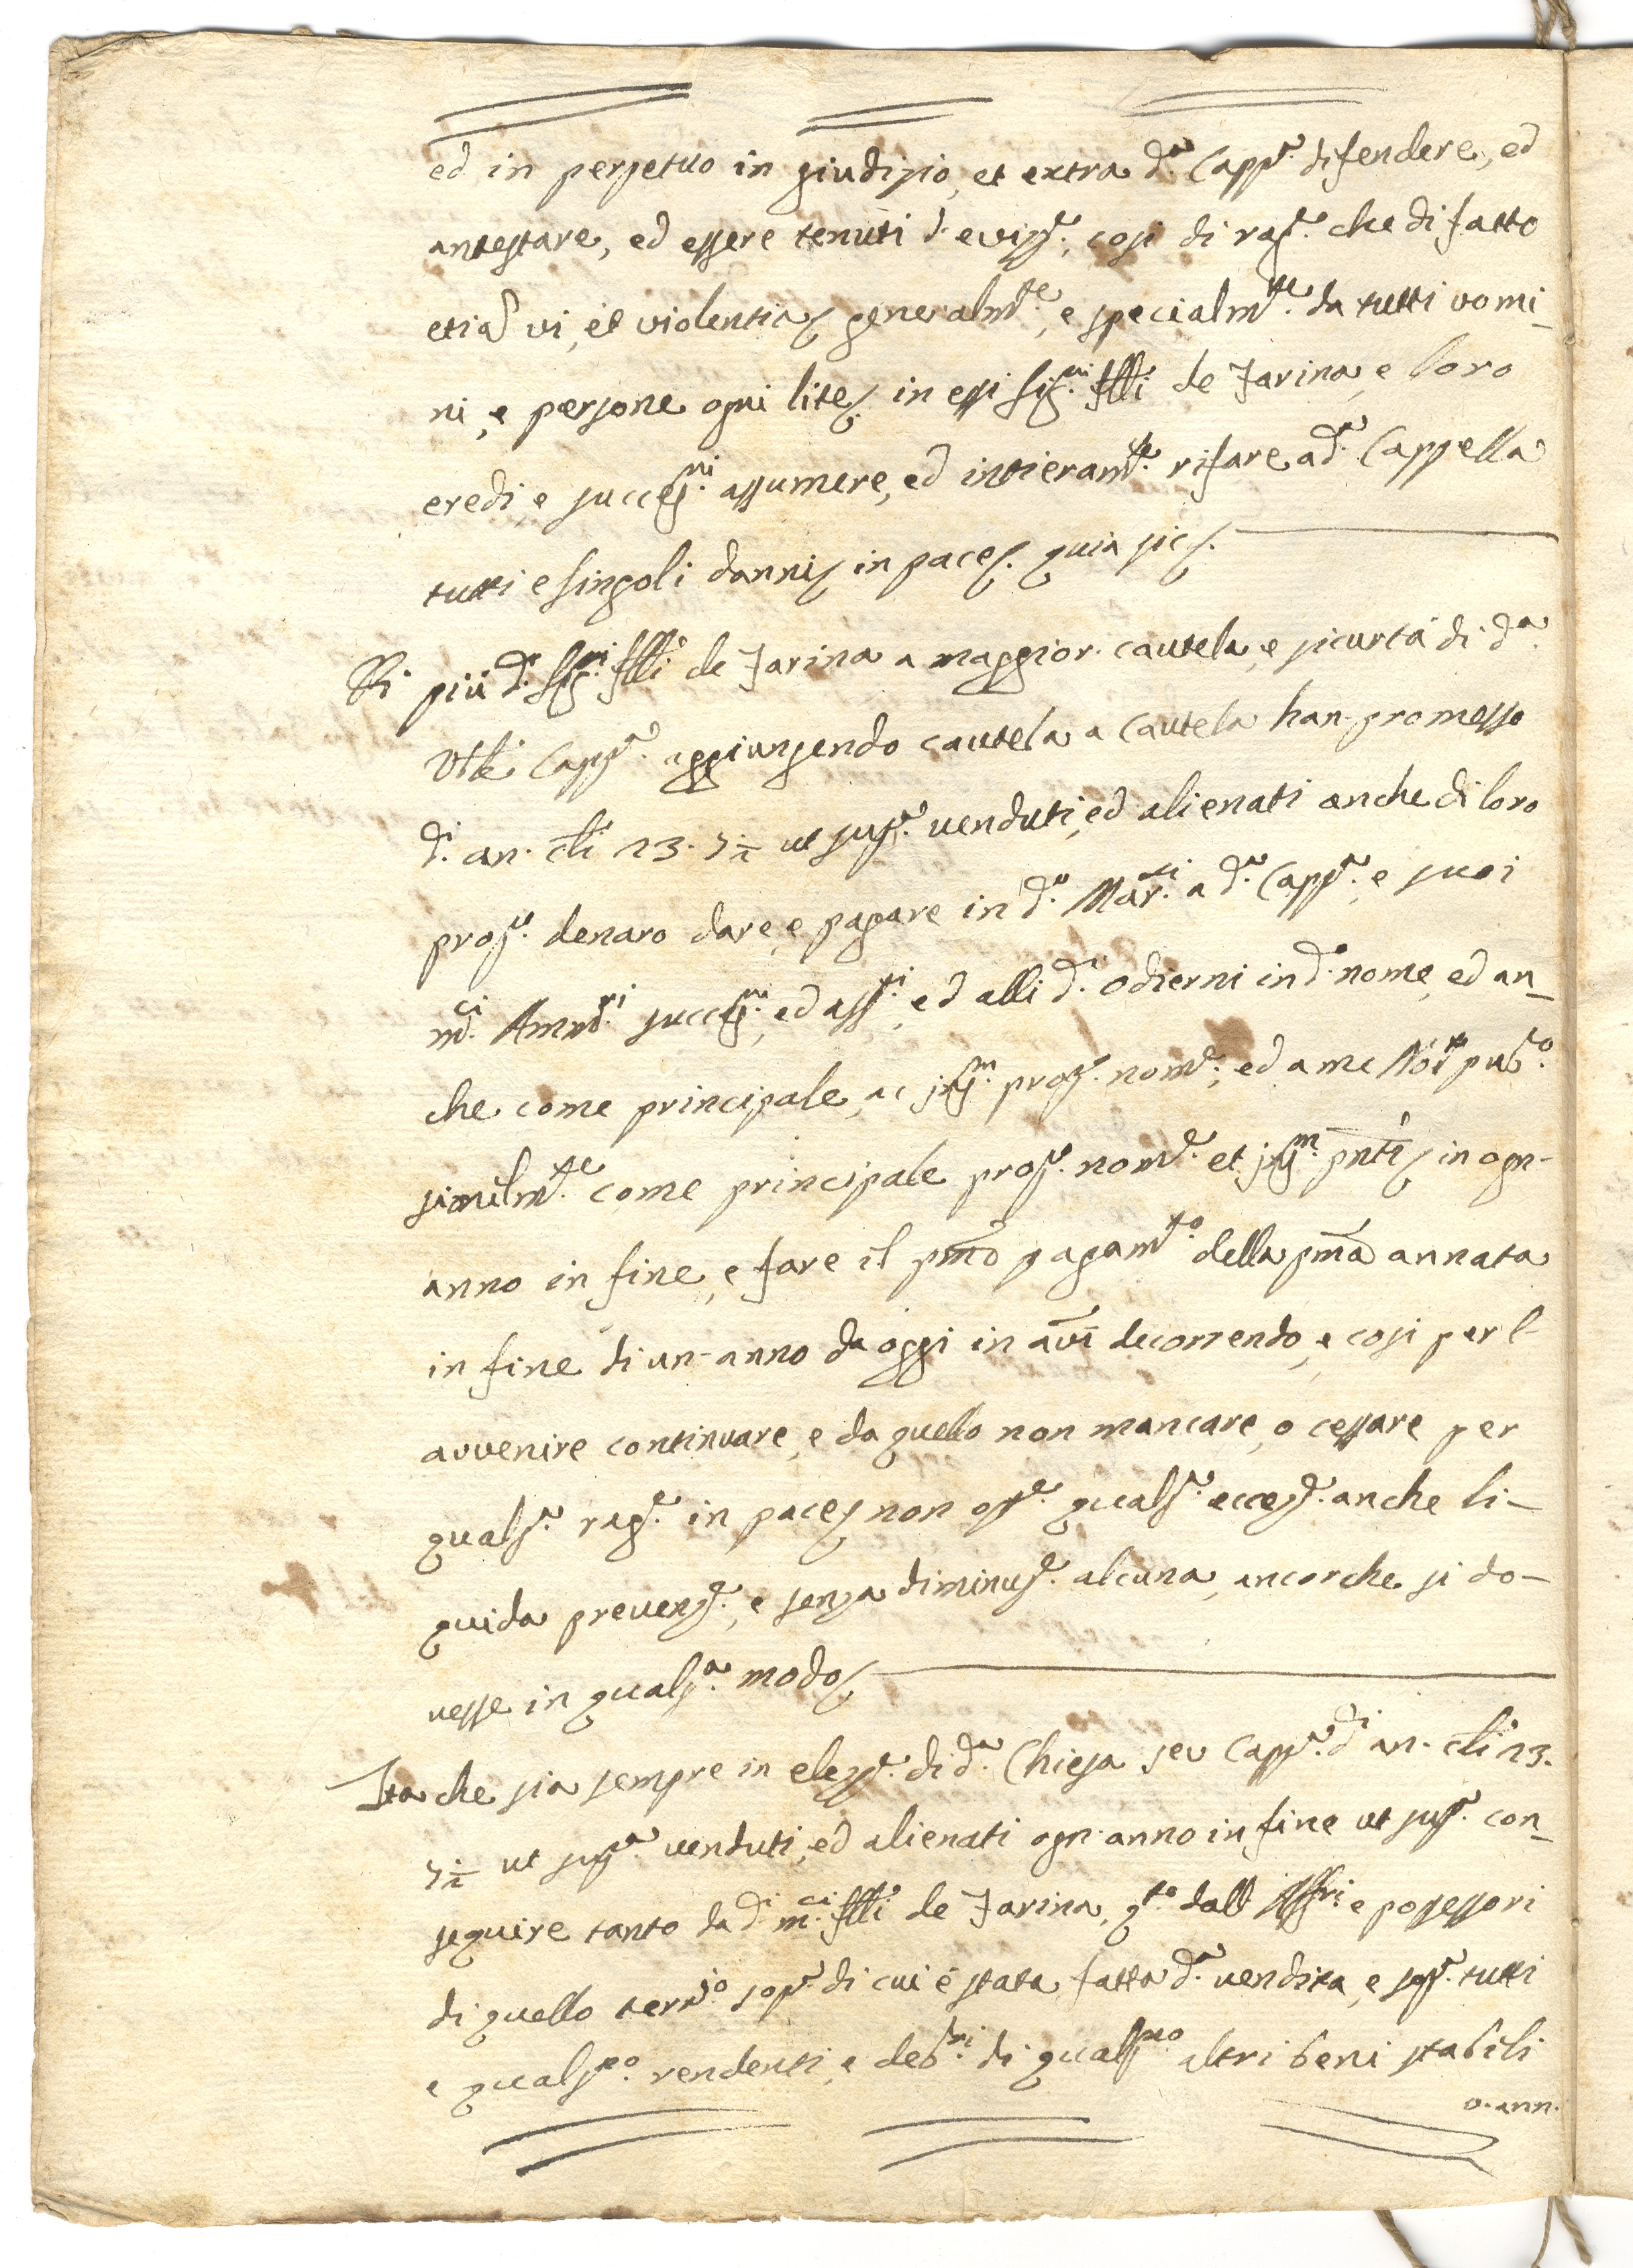 ed in perpetuo in giudizio, et extra d.ª Capp.ª difendere, ed
antestare, ed essere tenuti d' evizz.e, così di rag.e che di fatto
etiã vi, et violentia/ generalm.te, e specialm.te da tutti uomi-
ni, e persone ogni lite/ in essi Sig.ri flli de Farina, e loro
eredi, e success.ri assumere, ed intieram.te rifare a d.ª Cappella
tutti e singoli danni/ in pace/. quia sic/.
Di più d.i Sig.ri flli de Farina a maggior cautela, e sicurtà di d.ª
Vble Capp.ª aggiungendo cautela a cautela han promesso
d.i an. cti 13. 7½ ut sup.ª venduti, ed alienati anche di loro
prop.o denaro dare, e pagare in d.o Mar.i a d.ª Capp.ª, e suoi
m.ci Amm.ri success.ri, ed ass.ti, ed alli d.i odierni in d.o nome, ed an-
che come principale, ac ins.m prop. nom.e, ed a me Not.r pub.o
similm.te come principale prop.o nom.e et ins.m pnti/ in ogn-
anno in fine, e fare il pmo pagam.to della pma annata
in fine di un-anno da oggi in avi decorrendo, e così per l-
avvenire continuare, e da quello non mancare, o cessare per
quals.ª rag.e in pace/ non ost.e quals.ª eccez.e anche li-
quida prevenz.e, e senza diminuz.e alcuna, ancorche si do-
vesse in quals.ª modo/
Ita che sia sempre in elez.e di d.ª Chiesa seu Capp.ª d.i an. cti 13.
7½ ut sup.ª venduti, ed alienati ogn-anno in fine ut sup.ª con-
seguire tanto da d.i m.ci flli de Farina, q.to dall e possessori
di quello terr.io sop.ª di cui è stata fatta d.ª vendita, e sop.ª tutti
e quals.no rendenti, e deb.ri di quals.no altri beni stabili
o. ann.